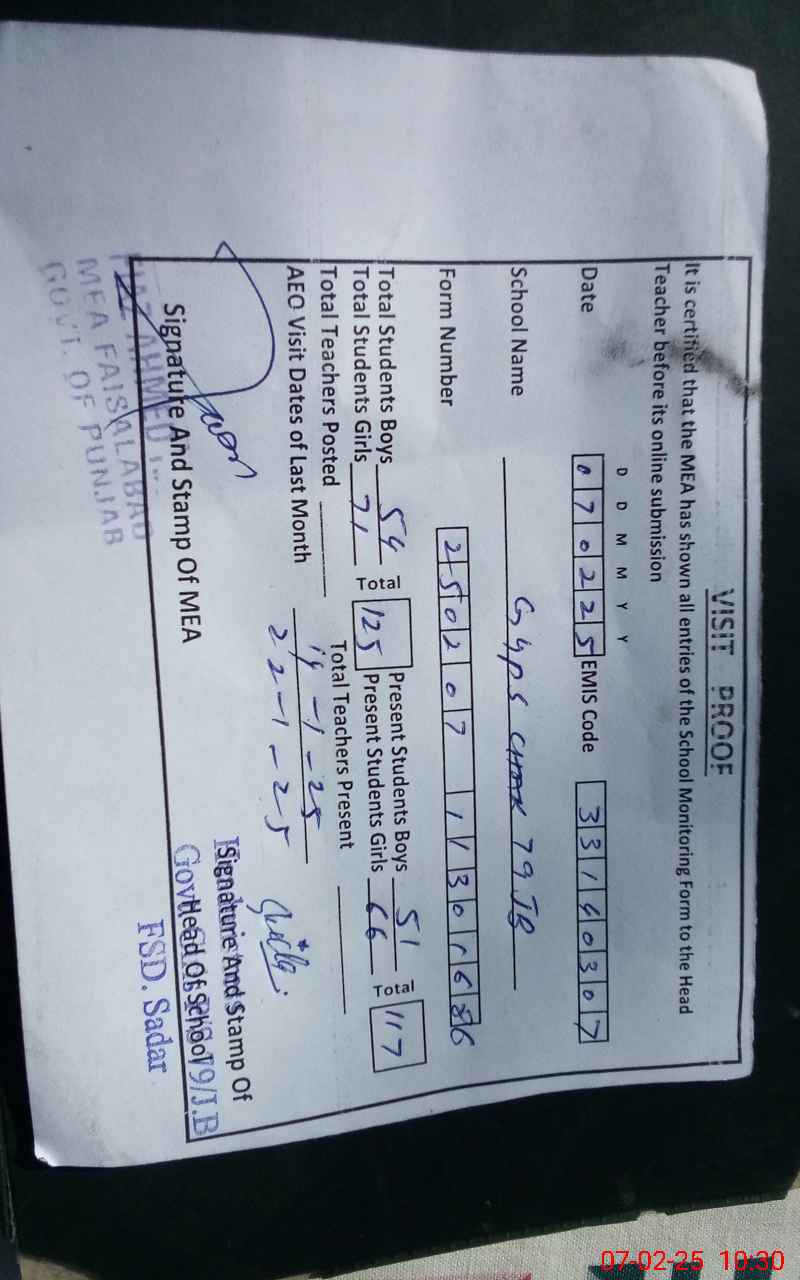 VISIT PROOF
It is certified that the MEA has shown all entries of the School Monitoring Form to the Head
Teacher before its online submission
D D M M Y Y
Date 070225 EMIS Code 33140307
School Name GGPS CHAK 79 JB
Form Number
Total Students Boys 54 Total 125 Present Students Boys 51 Total 117
Total Students Girls 71 Present Students Girls 66
Total Teachers Posted Total Teachers Present
AEO Visit Dates of Last Month 14-1-25
22-1-25
Signature And Stamp Of MEA
Signature And Stamp Of
Head Of School
AHMED
MEA FAISALABAD
GOVT. OF PUNJAB
79/J.B
FSD. Sadar
07-02-25 10:30